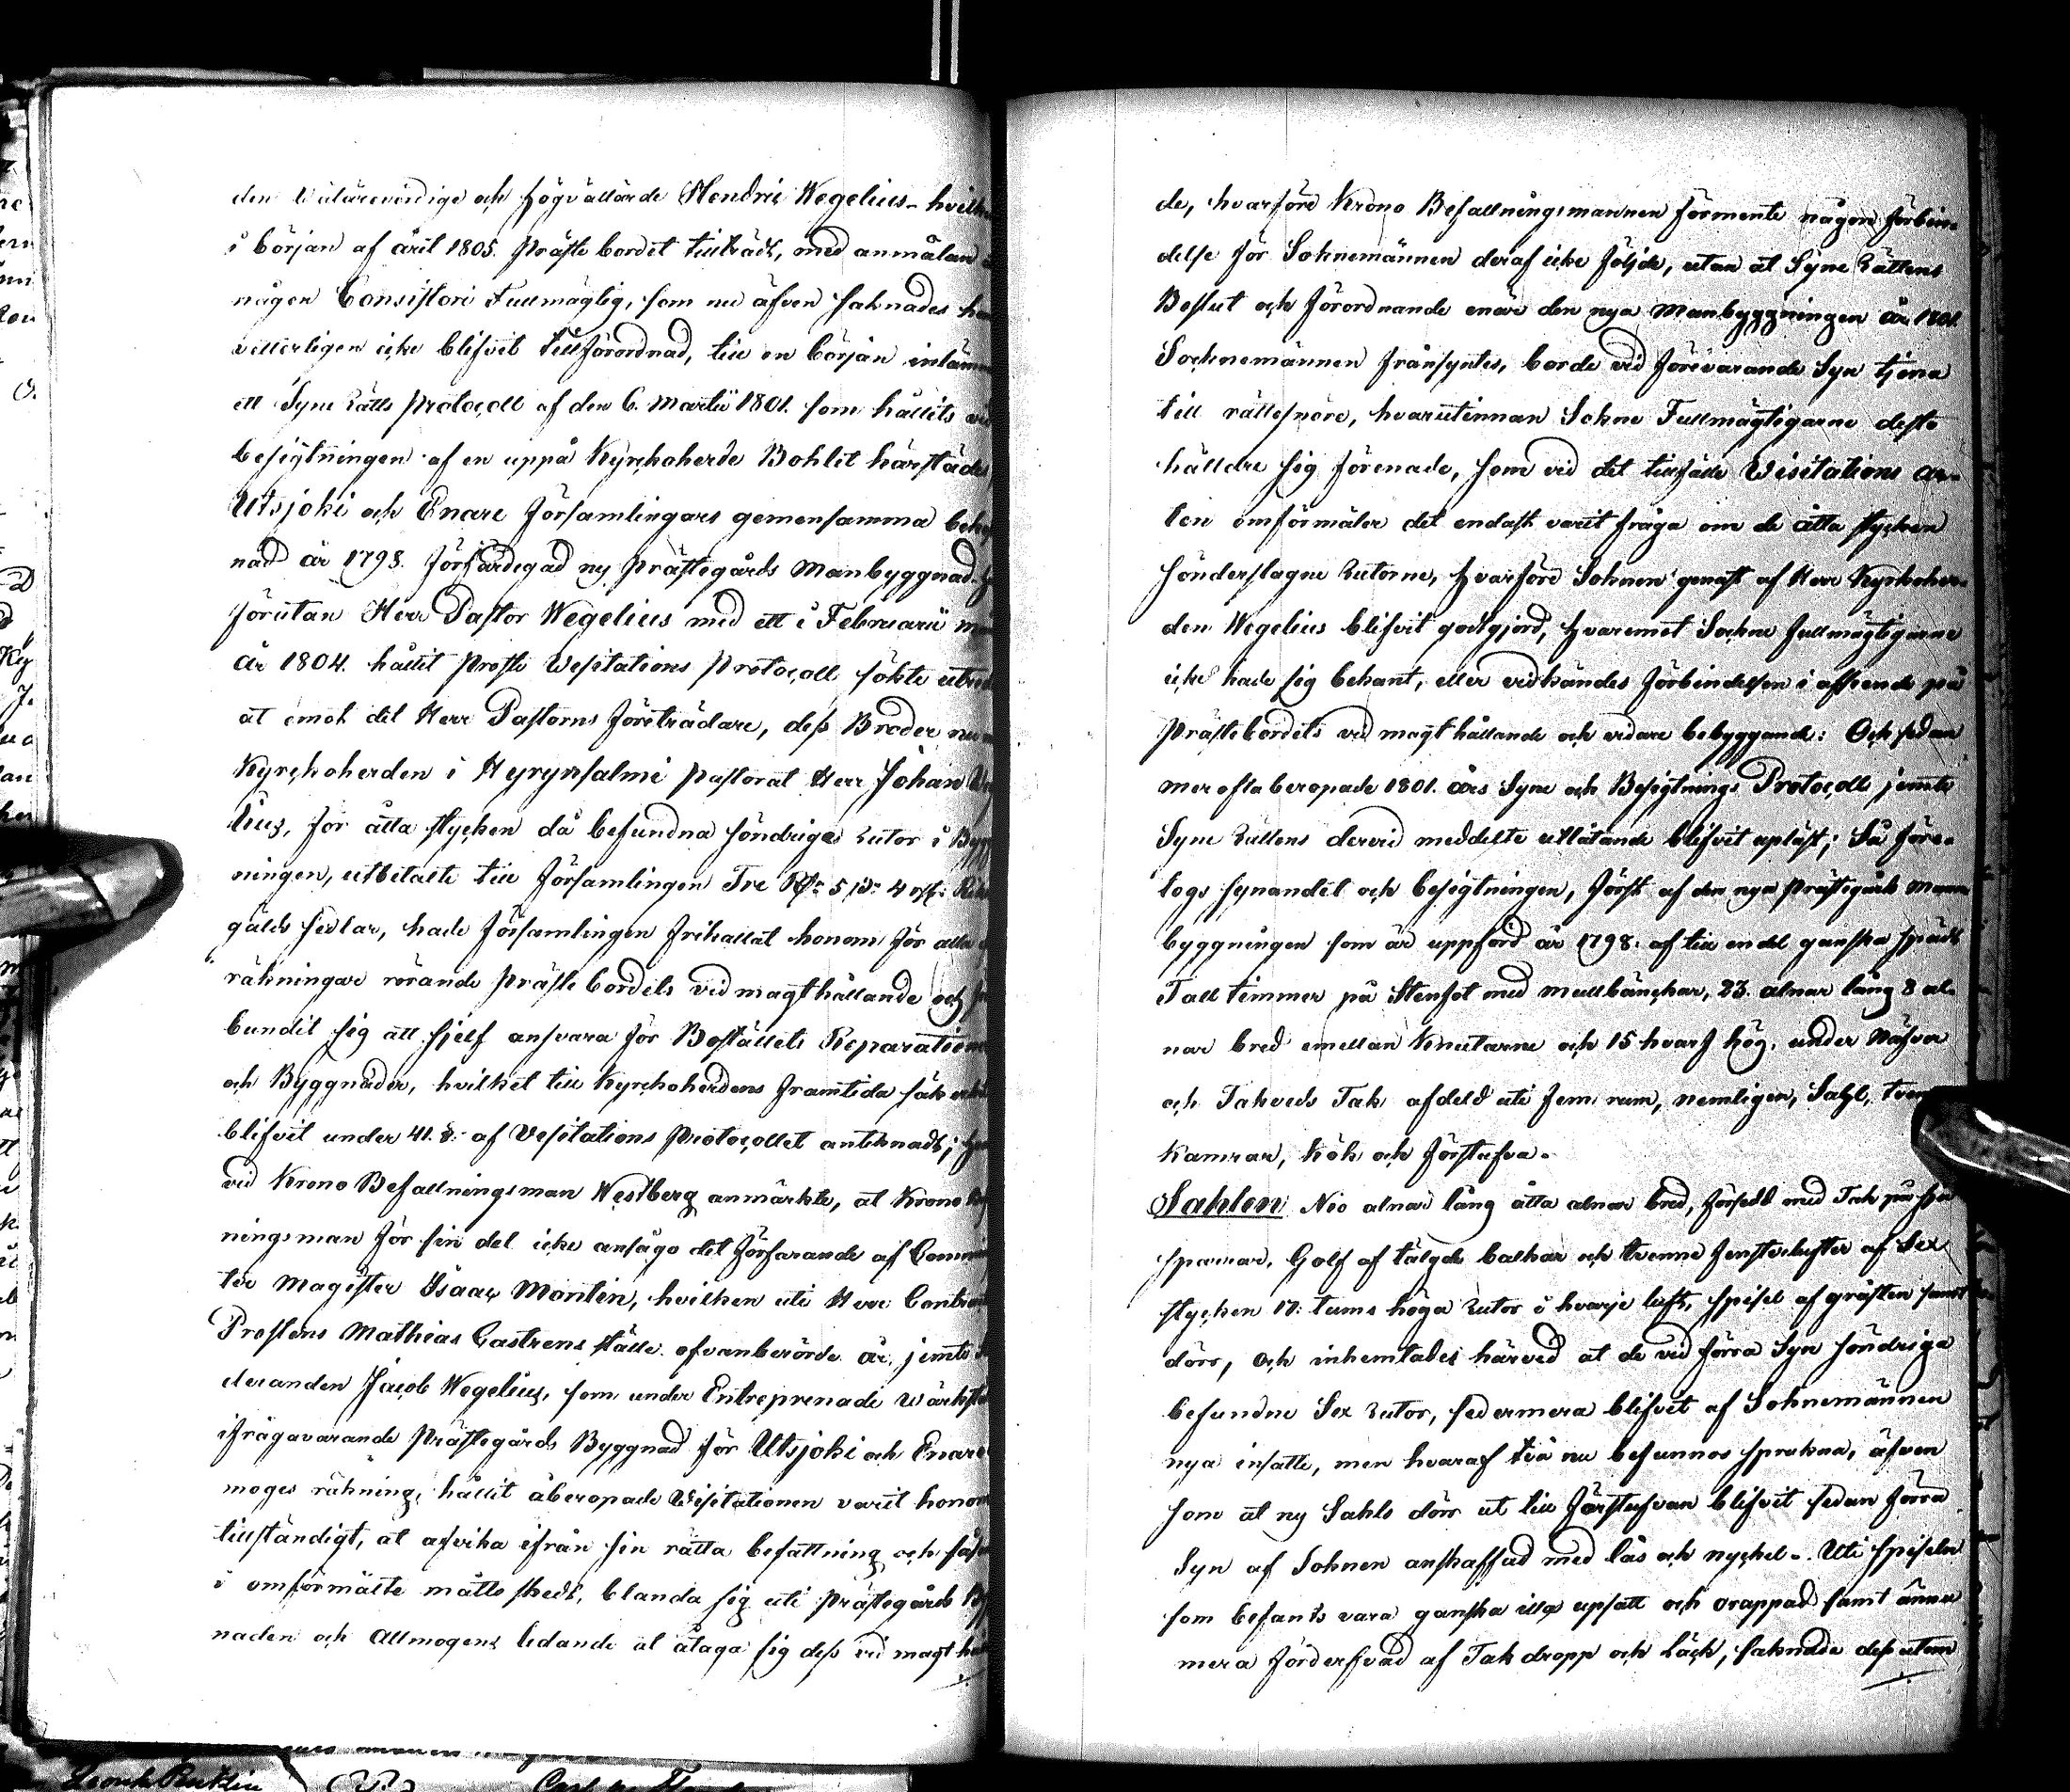 den Wälärevördige och högvällärde Hendric Wegelius hvilken
i början af året 1805. Prästebordet tillträdt, med anmälan
någon Consistorii Fullmägtig, som nu äfven saknades
vitterligen icke blifvit tillförordnad, till en början inläm
ett Syne Rätts Protocoll af den 6. Martii 1801. som hållits vid
besigtningen af en uppå Kyrckoherde Bohlet härstädes
Utsjoki och Enare Församlingars gemensamma
nad år 1798. förfärdegad ny Prästegårds Manbyggnad
Förutan Herr Pastor Wegelius med ett i Februarii
År 1804. hållit Proste Vesitations Protocoll sökte
at emot det Herr Pastorns företrädare, dess Broder
Kyrckoherden i Hyrynsalmi Pastorat Herr Johan Weg
lius, för åtta stycken då befundna söndriga Rutor i Bygg
ningen, utbetalte till Församlingen Tre Rd: 5 s: 4 rst: Riks
gälds sedlar, hade Församlingen frikallat honom för alla
räkningar rörande Präste bordets vid magthållande och
bundit sig att sjelf ansvara för Boställets Reparation
och Byggnader, hvilket till Kyrckoherdens framtida säkerhet
blifvit under 41. §: af Vesitations Protocollet antecknadt;
vid Krono Befallningsman Westberg anmärkte, at Krono
ningsman för sin del icke ansågo det förfarande af
ter Magister Isaac Montin, hvilken uti Herr Contract
Prostens Mathias Castrens ställe ofvanberörde år, jemte
deranden Jacob Wegelius, som under Entreprenade
ifrågavarande Prästegårds Byggnad för Utsjoki och Enare
moges räkning, hållit åberopade Visitationen varit honom
tillständigt, at afvika ifrån sin rätta befattning och
i omförmälte måtto skedt, blanda sig uti Prästegårds By
naden och Allmogens ledande at åtaga sig dess vid magt
de, hvarföre Krono Befallningsmannen förmente någon förbin-
delse för Soknemännen deraf icke följde, utan at Syne Rättens
Beslut och förordnande enär den nya Manbyggningen år 1801.
Socknemännen frånsyntes, borde vid förevarande Syn tjena
till rättesnöre, hvarutinnan Sokne Fullmägtigarne desto
hälldre sig förenade, som vid det tillfälle Visitations ac-
ten omförmäler det endast varit fråga om de åtta stycken
sönderslagne Rutorne, hvarföre Soknen genast af Herr Kyrkoher-
den Wegelius blifvit godtgjord, hvaremot Sockne fullmägtigarne
icke hade sig bekant, eller vidkändes förbindelsen i afseende på
Prästebordets vid magt hållande och vidare bebyggande: Och sedan
mer ofta beropade 1801. års Syne och Besigtnings Protocoll jemte
Syne Rättens dervid meddelte utlåtande blifvit upläst; Så före-
togs synandet och besigtningen, först af den nya Prästegårds Mann
byggningen som är uppförd år 1798. af till en del ganska spädt
Tall temmer på Stenfot med mullbänckar, 23. alnar lång 8 al-
nar bred emellan Knutarne och 15 hvarf hög, under Näfver
och Takveds Tak afdeld uti fem rum, nemligen, Sahl, tvenne
Kamrar, Kök och Förstufva.
Sahlen Nio alnar lång åtta alnar bred, försedd med Tak på
sparrar, Golf af tälgde balkar och trenne fensterlufter af Sex
stycken 17. tums höga Rutor i hvarje luft, spisel af gråsten samt
dörr, och inhemtades härvid at de vid förra Syn söndriga
befundne Sex Rutor, sedermera blifvit af Soknemännen
nya insatte, men hvaraf två nu befunnos sprukna, äfven
som at ny Sahls dörr ut till Förstufvan blifvit sedan förra
Syn af Soknen anskaffad med lås och nyckel. Uti spiseln
som befants vara ganska illa upsatt och orappad samt ännu
mera förderfvad af Takdropp och läck, saknade dess utom